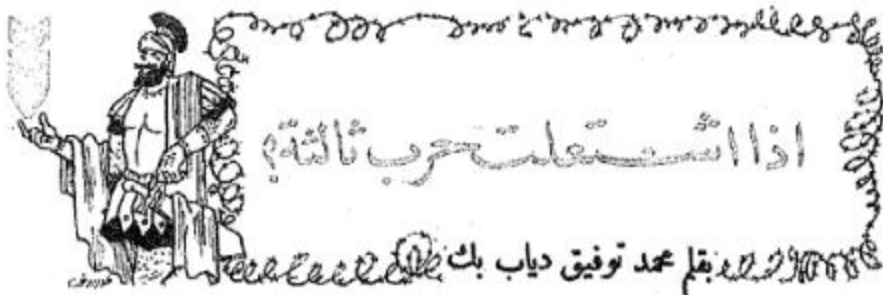 اذا اشتعلت حرب ثالثة؟
بقلم محمد توفيق دياب بك